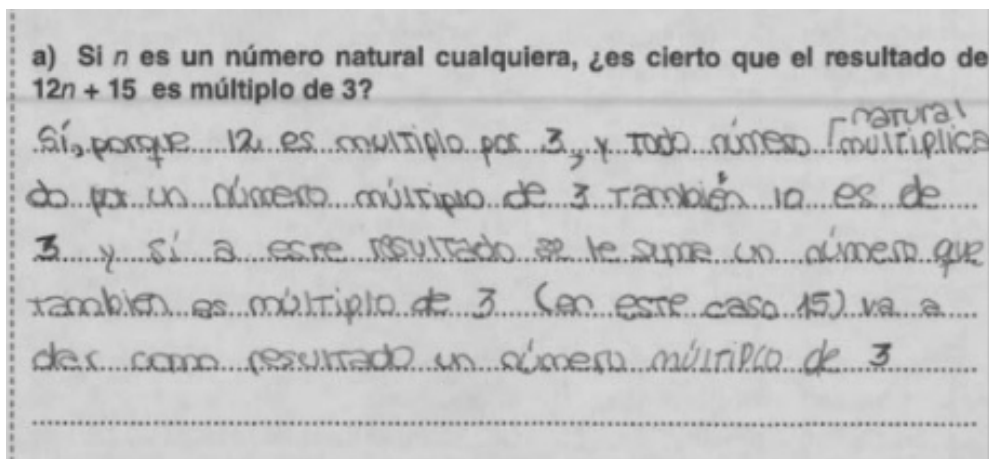 a) Si n es un número natural cualquiera, ¿es cierto que el resultado de
12n + 15 es múltiplo de 3?
natural
Sí, porque 12 es multiplo por 3, y todo número multiplica
do por un número múltiplo de 3 también lo es de
3 y sí a este resultado se le suma un número que
tambien es múltiplo de 3 (en este caso 15) va a
dar como resultado un número múltiplo de 3